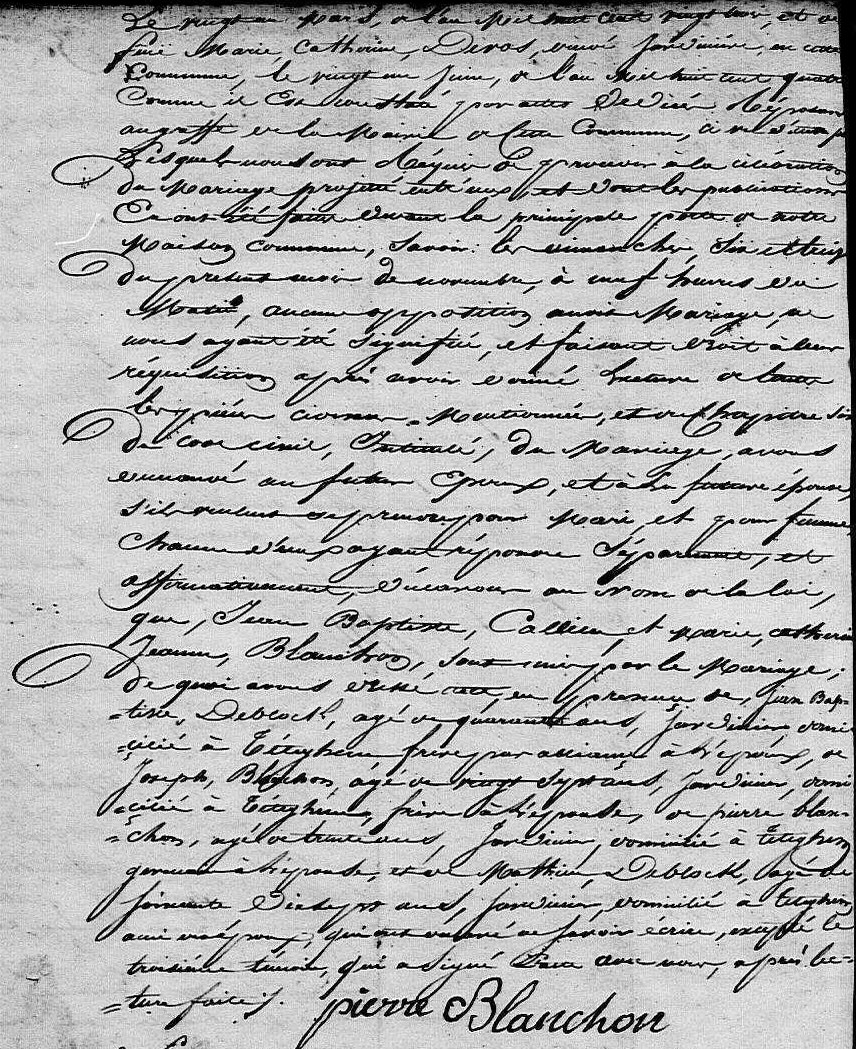 Le vingt un Mars, de l'an Mil huit cent vingt trois, et de
feue Marie, Catherine, Devos, vivé Jardinière, en cette
Commune, le vingt un Juin, de l'an Mil huit cent quatre
Comme il Est constaté par actes dédiés Déposés
au greffe de la Mairie de Cette Commune,
Lesquels nous ont Requis de procéder à la célébration
du Mariage projetté entr'eux, et dont les publications
En ont été faites devant la principale porte de notre
Maison Commune, Savoir: les dimanches, Six et treize
du présent mois de novembre, à neuf heures du
Matin, aucune opposition audit Mariage, ne
nous ayant été Signifiée, et faisant droit à leur
réquisition après avoir donné lecture de toutes
les pièces ci-dessus Mentionnées, et du Chapitre Six
du Code civil, Intitulé, du Mariage, avons
demandé au futur Epoux, et à la future épouse,
s'ils veulent se prendre pour Mari, et pour femme,
Chacun d'eux ayant répondu Séparément, et
affirmativement, déclarons au Nom de la loi,
que, Jean Baptiste, Callieu, et Marie, Catherine
Jeanne, Blanchon, sont unis par le Mariage;
de quoi avons dressé acte, en présence de, Jean Bap-
=tiste, Deblock, agé de quarante ans, Jardinier, domi
=cilié à Téteghem frère par alliance à l'époux, de
Joseph, Blanchon, agé de vingt Sept ans, Jardinier, domi
=cilié à Téteghem, frère à l'épouse, de pierre blan-
=chon, agé de trente ans, Jardinier, domicilié à Téteghem
germain à l'épouse, et de Mathieu Deblock, agé de
soixante Dix sept ans, Jardinier, domicilié à Teteghem
ami de époux, qui ont déclaré ne Savoir écrire, excepté le
troisième témoin, qui a Signé L'acte avec nous, après lec-
=ture faite.
pierre Blanchon